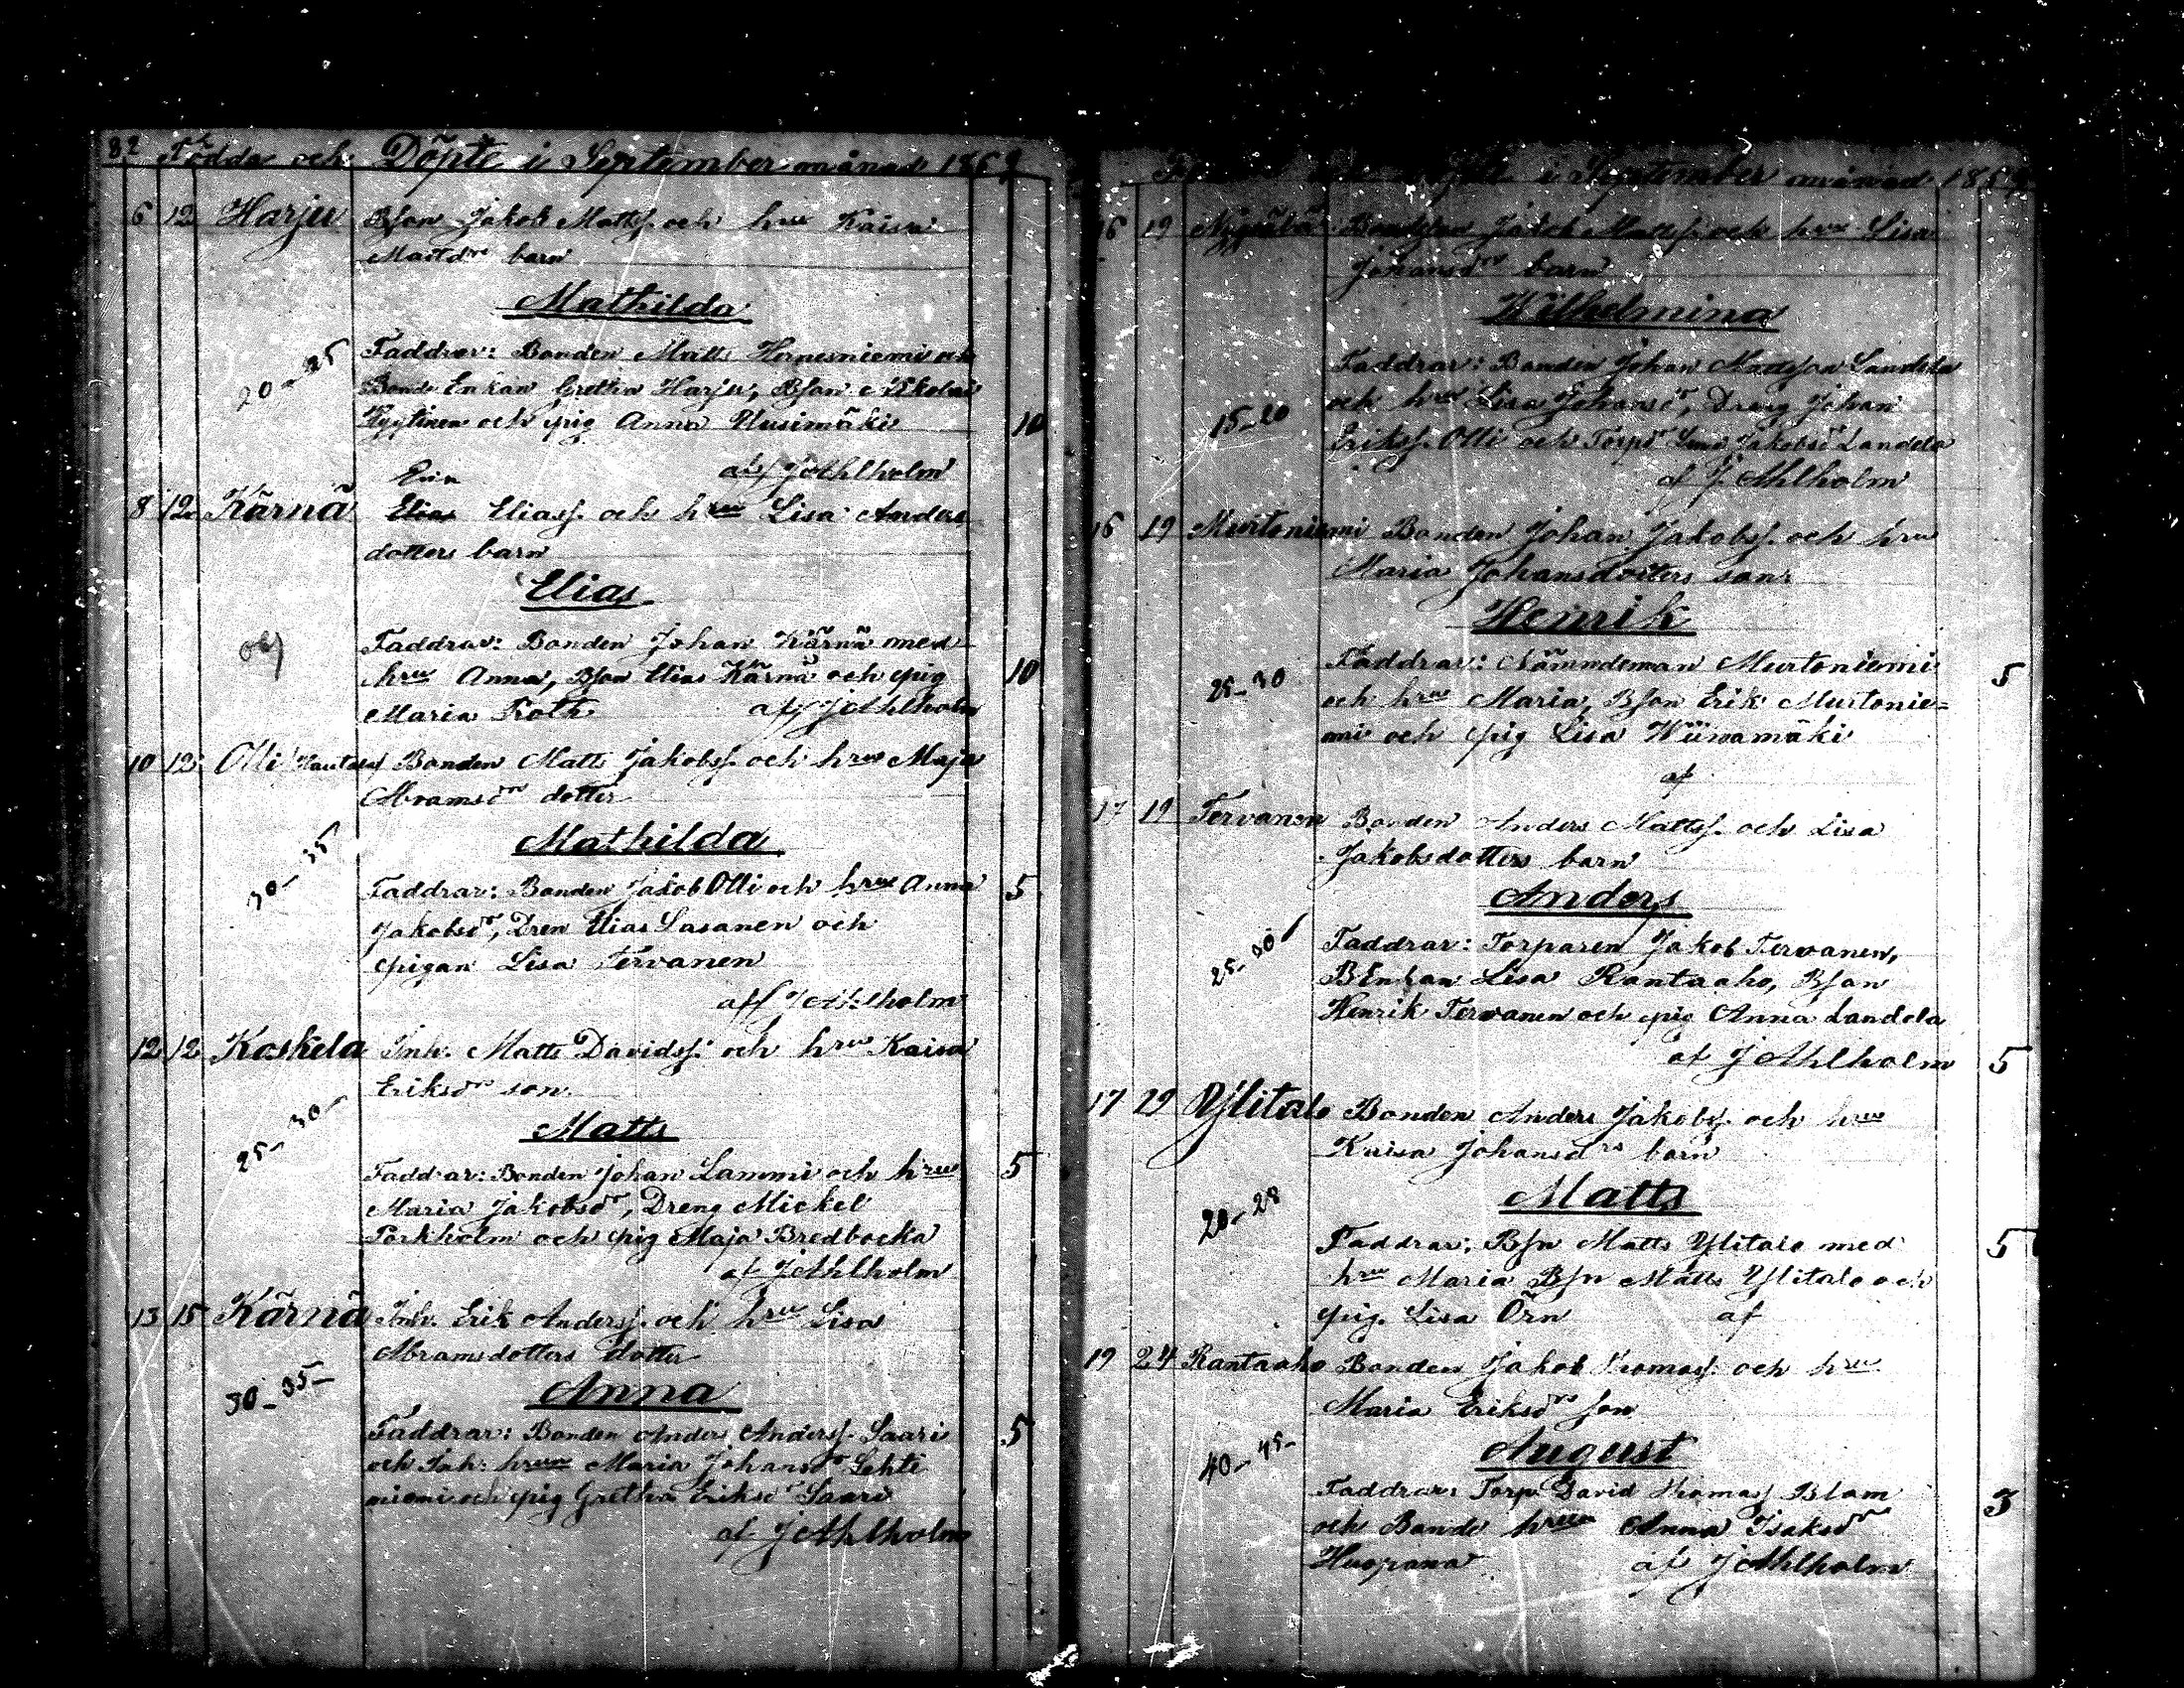 82 Födde och Döpte i September månad 186
6 12 Harju Bson Jakob Matts. och hru Kaisa
Mattdrs barn
Mathilda
Faddrar: Bonden Matts Hernesniemi och
20-25 Bonde Enkan Gretha Harju, Bson Nikolai
Hyytinen och pig Anna Uusimäki 10
af J Ahlholm
8 12 Kärnä Elias Eliass. och hru Lisa Anders
dotters barn
Elias
Faddrar: Bonden Johan Kärnä med
hru Anna, Bson Elias Kärnä och pig 10
Maria Roth af J Ahlholm
10 12 Olli Hautala Bonden Matts Jakobss. och hru Maja
Abramsdrs dotter
Mathilda
30-35 Faddrar: Bonden Jakob Olli och hru Anna 5
Jakobsdr, Dren Elias Sasanen och
pigan Lisa Tervanen
af J Ahlholm
12 12 Koskela Inh. Matts Davidss. och hru Kaisa
Eriksdrs son
Matts
25-30- Faddrar: Bonden Johan Lammi och hru 5
Maria Jakobsdr, Dreng Mickel
Forkholm och pig Maja Bredbacka
af J Ahlholm
13 15 Kärnä Inh. Erik Anderss. och hru Lisa
Abramsdotters dotter
Anna
30-35- Faddrar: Bonden Anders Anderss. Saari 5
och Inh: hrun Maria Johansdr Lehti
niemi och pig Gretha Eriksdr Saari
af J Ahlholm
i September månad 18
16 19 Jakob Matts. och hru Lisa
Johansdrs barn
Wilhelmina
Faddrar: Bonden Johan Mattsson Landela
15-20 och hru Lisa Johansdr, Dreng Johan
Erikss. Olli och Jakobsdr Landela
af J. Ahlholm
16 19 Murtoniemi Bonden Johan Jakobss. och hru
Maria Johansdotters son
Henrik
25-30 Faddrar: Nämndeman Murtoniemi 5
och hru Maria, Bson Erik Murtonie=
mi och pig Lisa Wiinamäki
af
17 19 Tervanen Bonden Anders Mattss. och Lisa
Jakobsdotters barn
Anders
25-30 Faddrar: Torparen Jakob Tervanen,
BEnkan Lisa Rantaaho, Bson
Henrik Tervanen och pig Anna Landela
af J Ahlholm 5
17 29 Ylitalo Bonden Anders Jakobss. och hru
Kaisa Johansdrs barn
Matts
20-28 Faddrar: Bsn Matts Ylitalo med 5
hru Maria Bsn Matts Ylitalo och
pig. Lisa Örn af
19 24 Rantaaho Bonden Jakob Thomass. och hru
Maria Eriksdrs son
August
40-45- Faddrar: Torp David Thomass Blom 3
och Bonde hrun Anna Isaksdr
Huopana af J Ahlholm